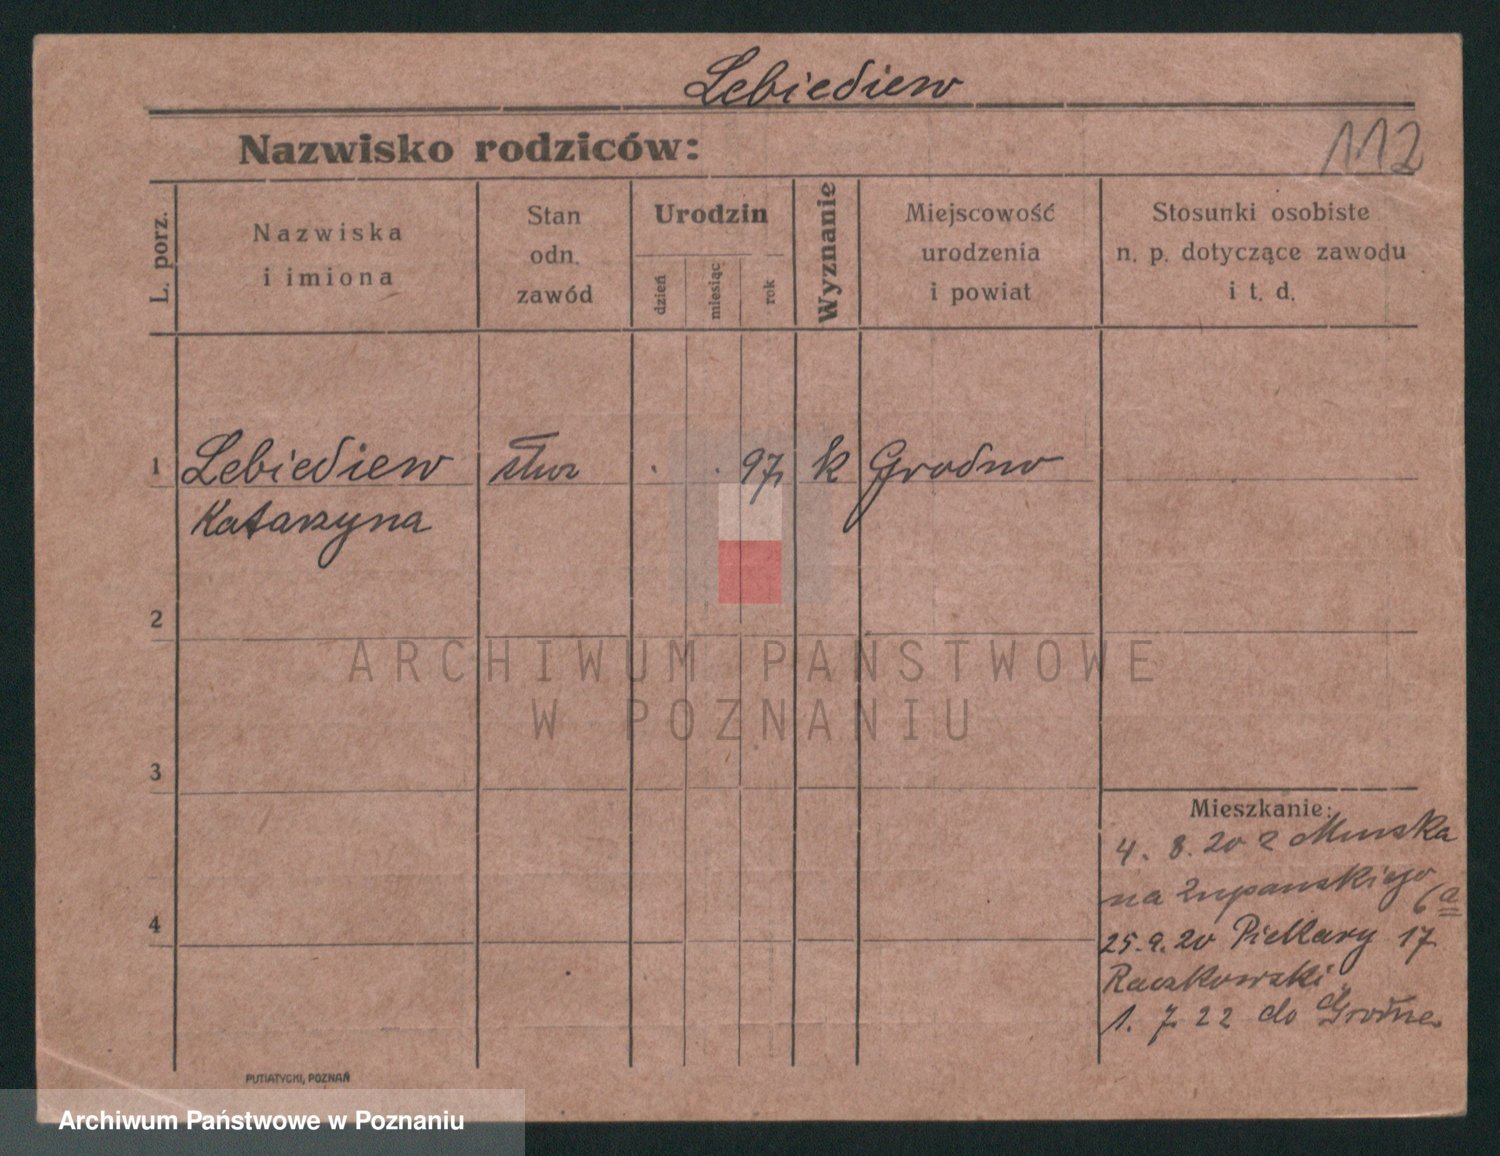 Lebiediew
Nazwisko rodziców:
112
L. porz.
Nazwiska
i imiona
Stan
odn.
zawód
Urodzin
dzień
miesiąc
rok
Wyznanie
Miejscowość
urodzenia
i powiat
Stosunki osobiste
n. p. dotyczące zawodu
i t. d.
1 Lebiediew 97 k Grodno
Katarzyna
2
ARCHIWUM PAŃSTWOWE
W POZNANIU
3
Mieszkanie:
4. 8. 20 z Minska
na Zupanskiego 6a
4
25. 9. 20 Piekary 17
Raczkowski
1. 7 22 do Grodna
PUTIATYCKI, POZNAŃ
Archiwum Państwowe w Poznaniu